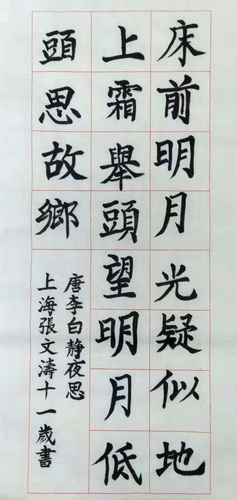 床前明月光疑似地
上霜舉頭望明月低
頭思故鄉
唐李白靜夜思
上海張文濤十一歲書